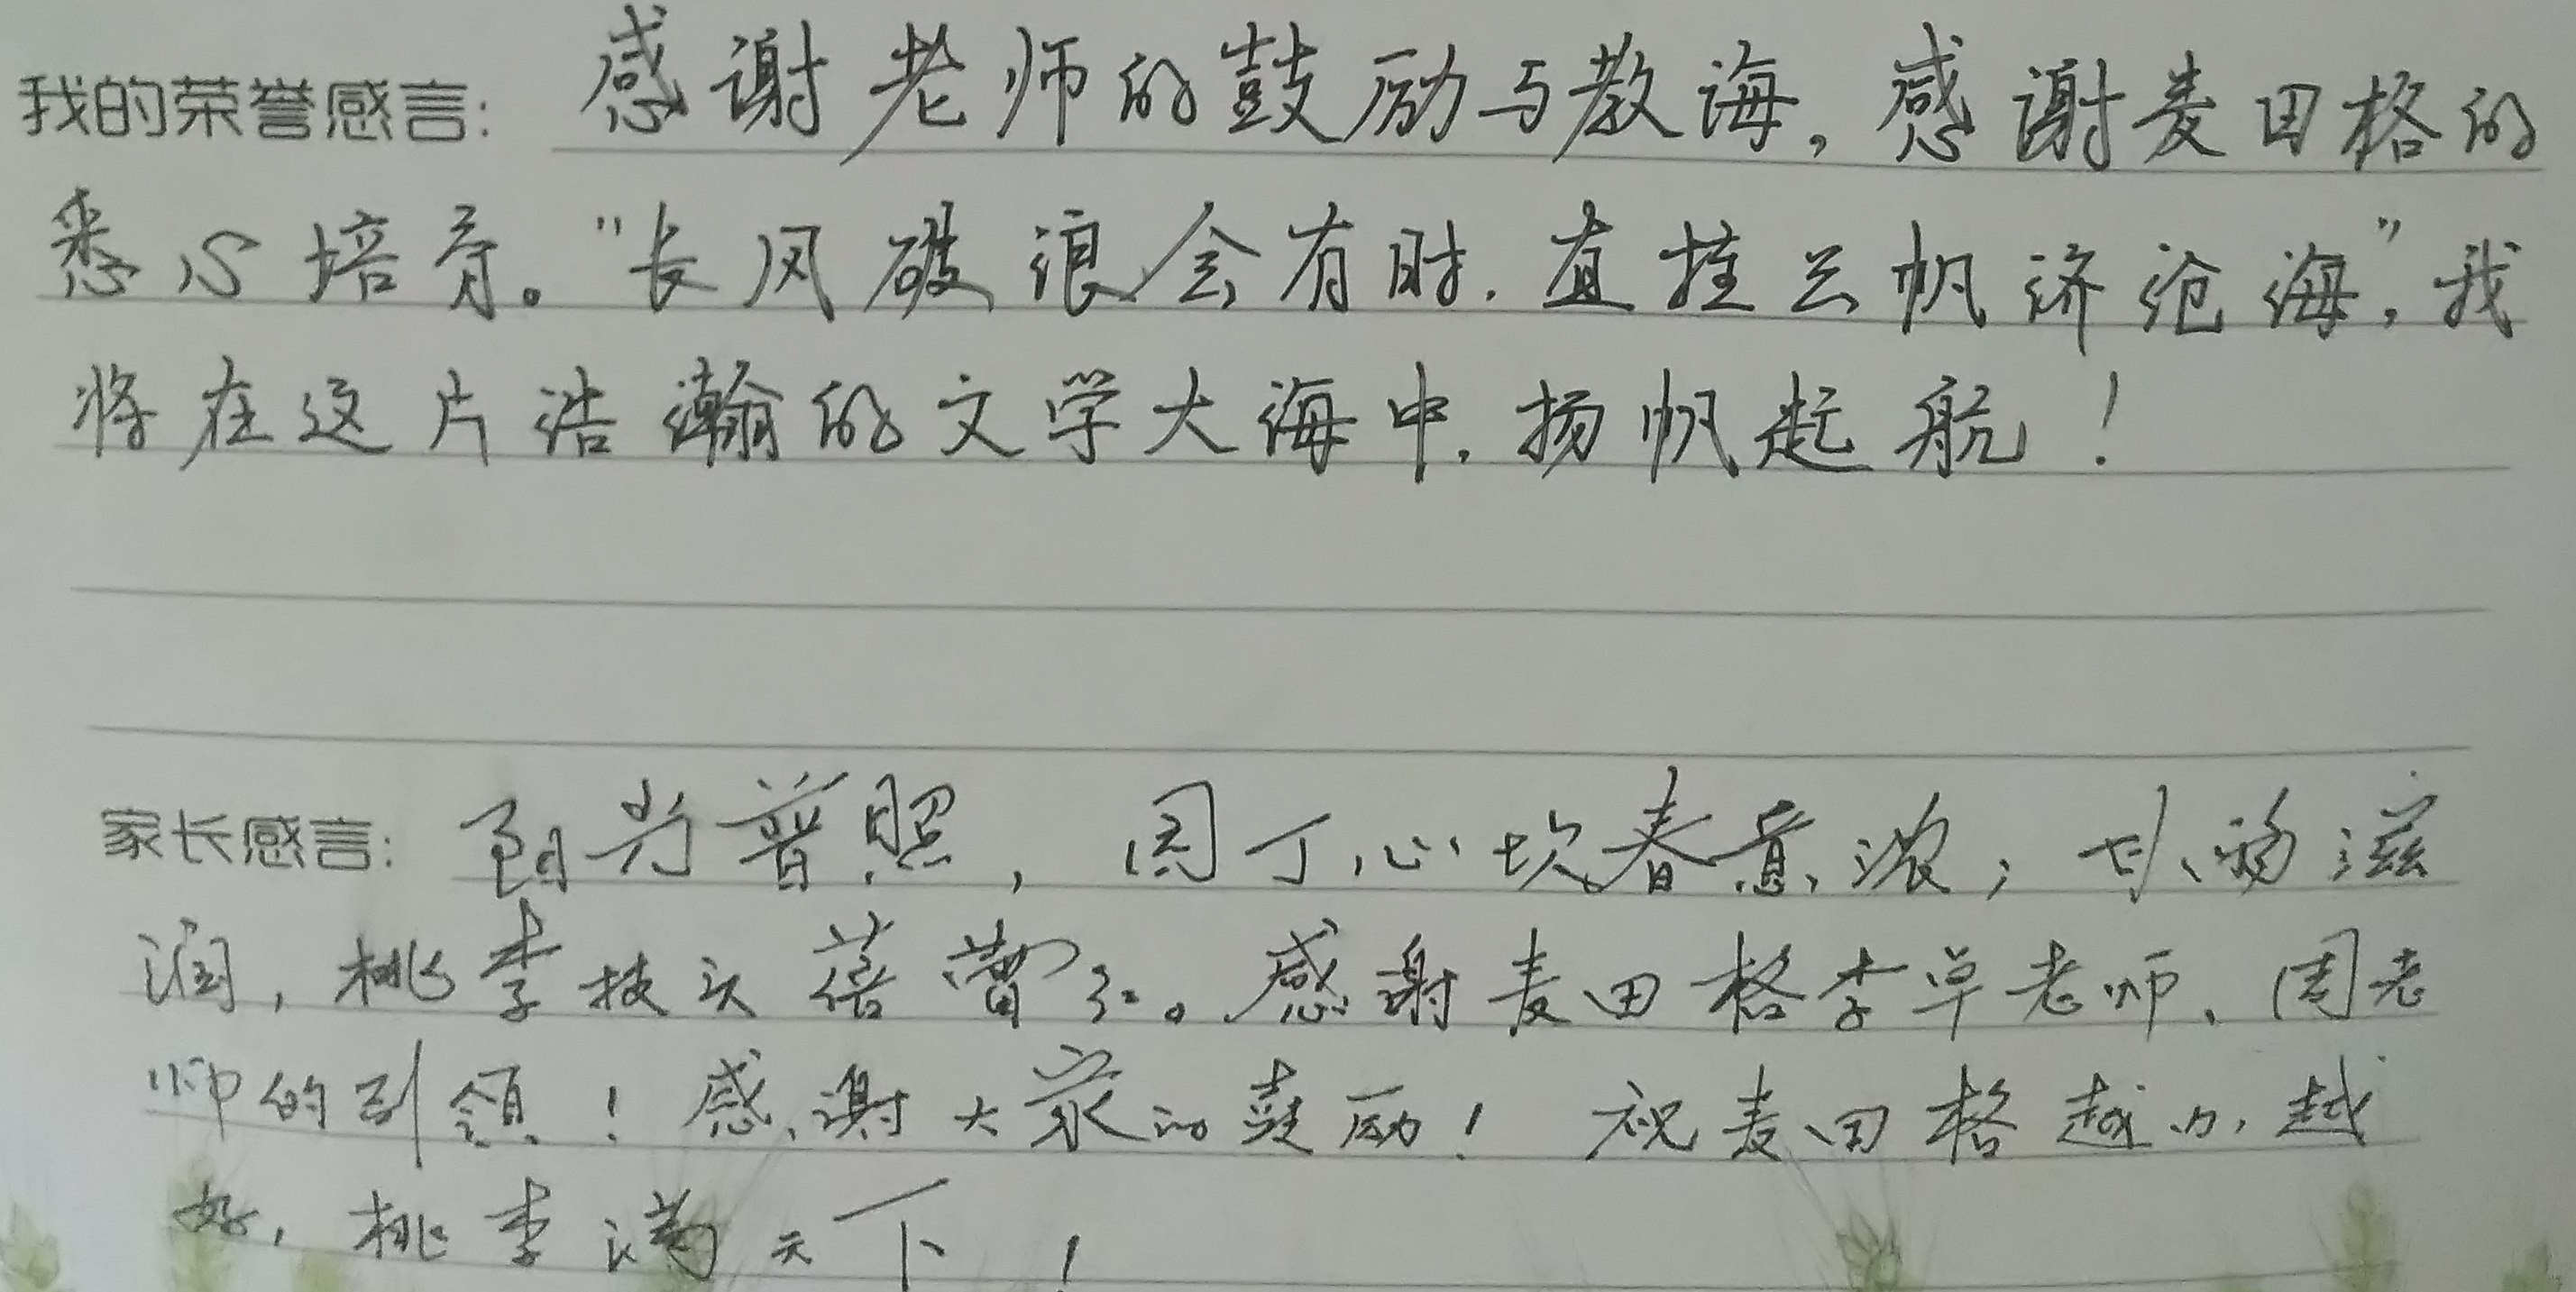 我的荣誉感言：感谢老师的鼓励与教诲，感谢麦田格的
悉心培育。"长风破浪会有时，直挂云帆济沧海"，我
将在这片浩瀚的文学大海中，扬帆起航！
家长感言：阳光普照，园丁心坎春意浓；甘露滋
润，桃李枝头蓓蕾红。感谢麦田格李单老师、周老
师的引领！感谢大家的鼓励！祝麦田格越办越
好，桃李满天下！